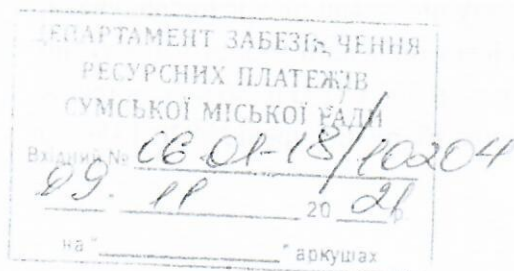 ДЕПАРТАМЕНТ ЗАБЕЗПЕЧЕННЯ
РЕСУРСНИХ ПЛАТЕЖІВ
СУМСЬКОЇ МІСЬКОЇ РАДИ
Вхідний № 06.01-18/10204
09. 11 20 21 р
на " " аркушах